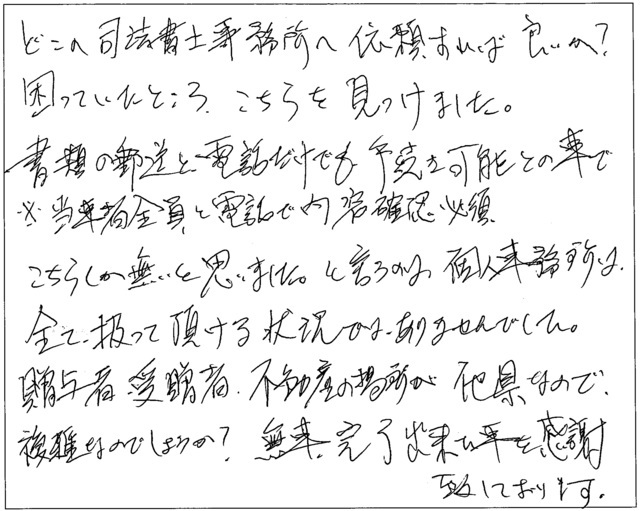 どこの司法書士事務所へ依頼すれば良いか?
困っていたところ、こちらを見つけました。
書類の郵送と電話だけでも手続き可能との事で
※当事者全員と電話で内容確認必須
こちらしか無いと思いました。と言うのは、個人事務所は、
全て扱って頂ける状況ではありませんでした。
贈与者、受贈者、不動産の場所が他県なので、
複雑なのでしょうか? 無事、完了出来た事を感謝
致しております。